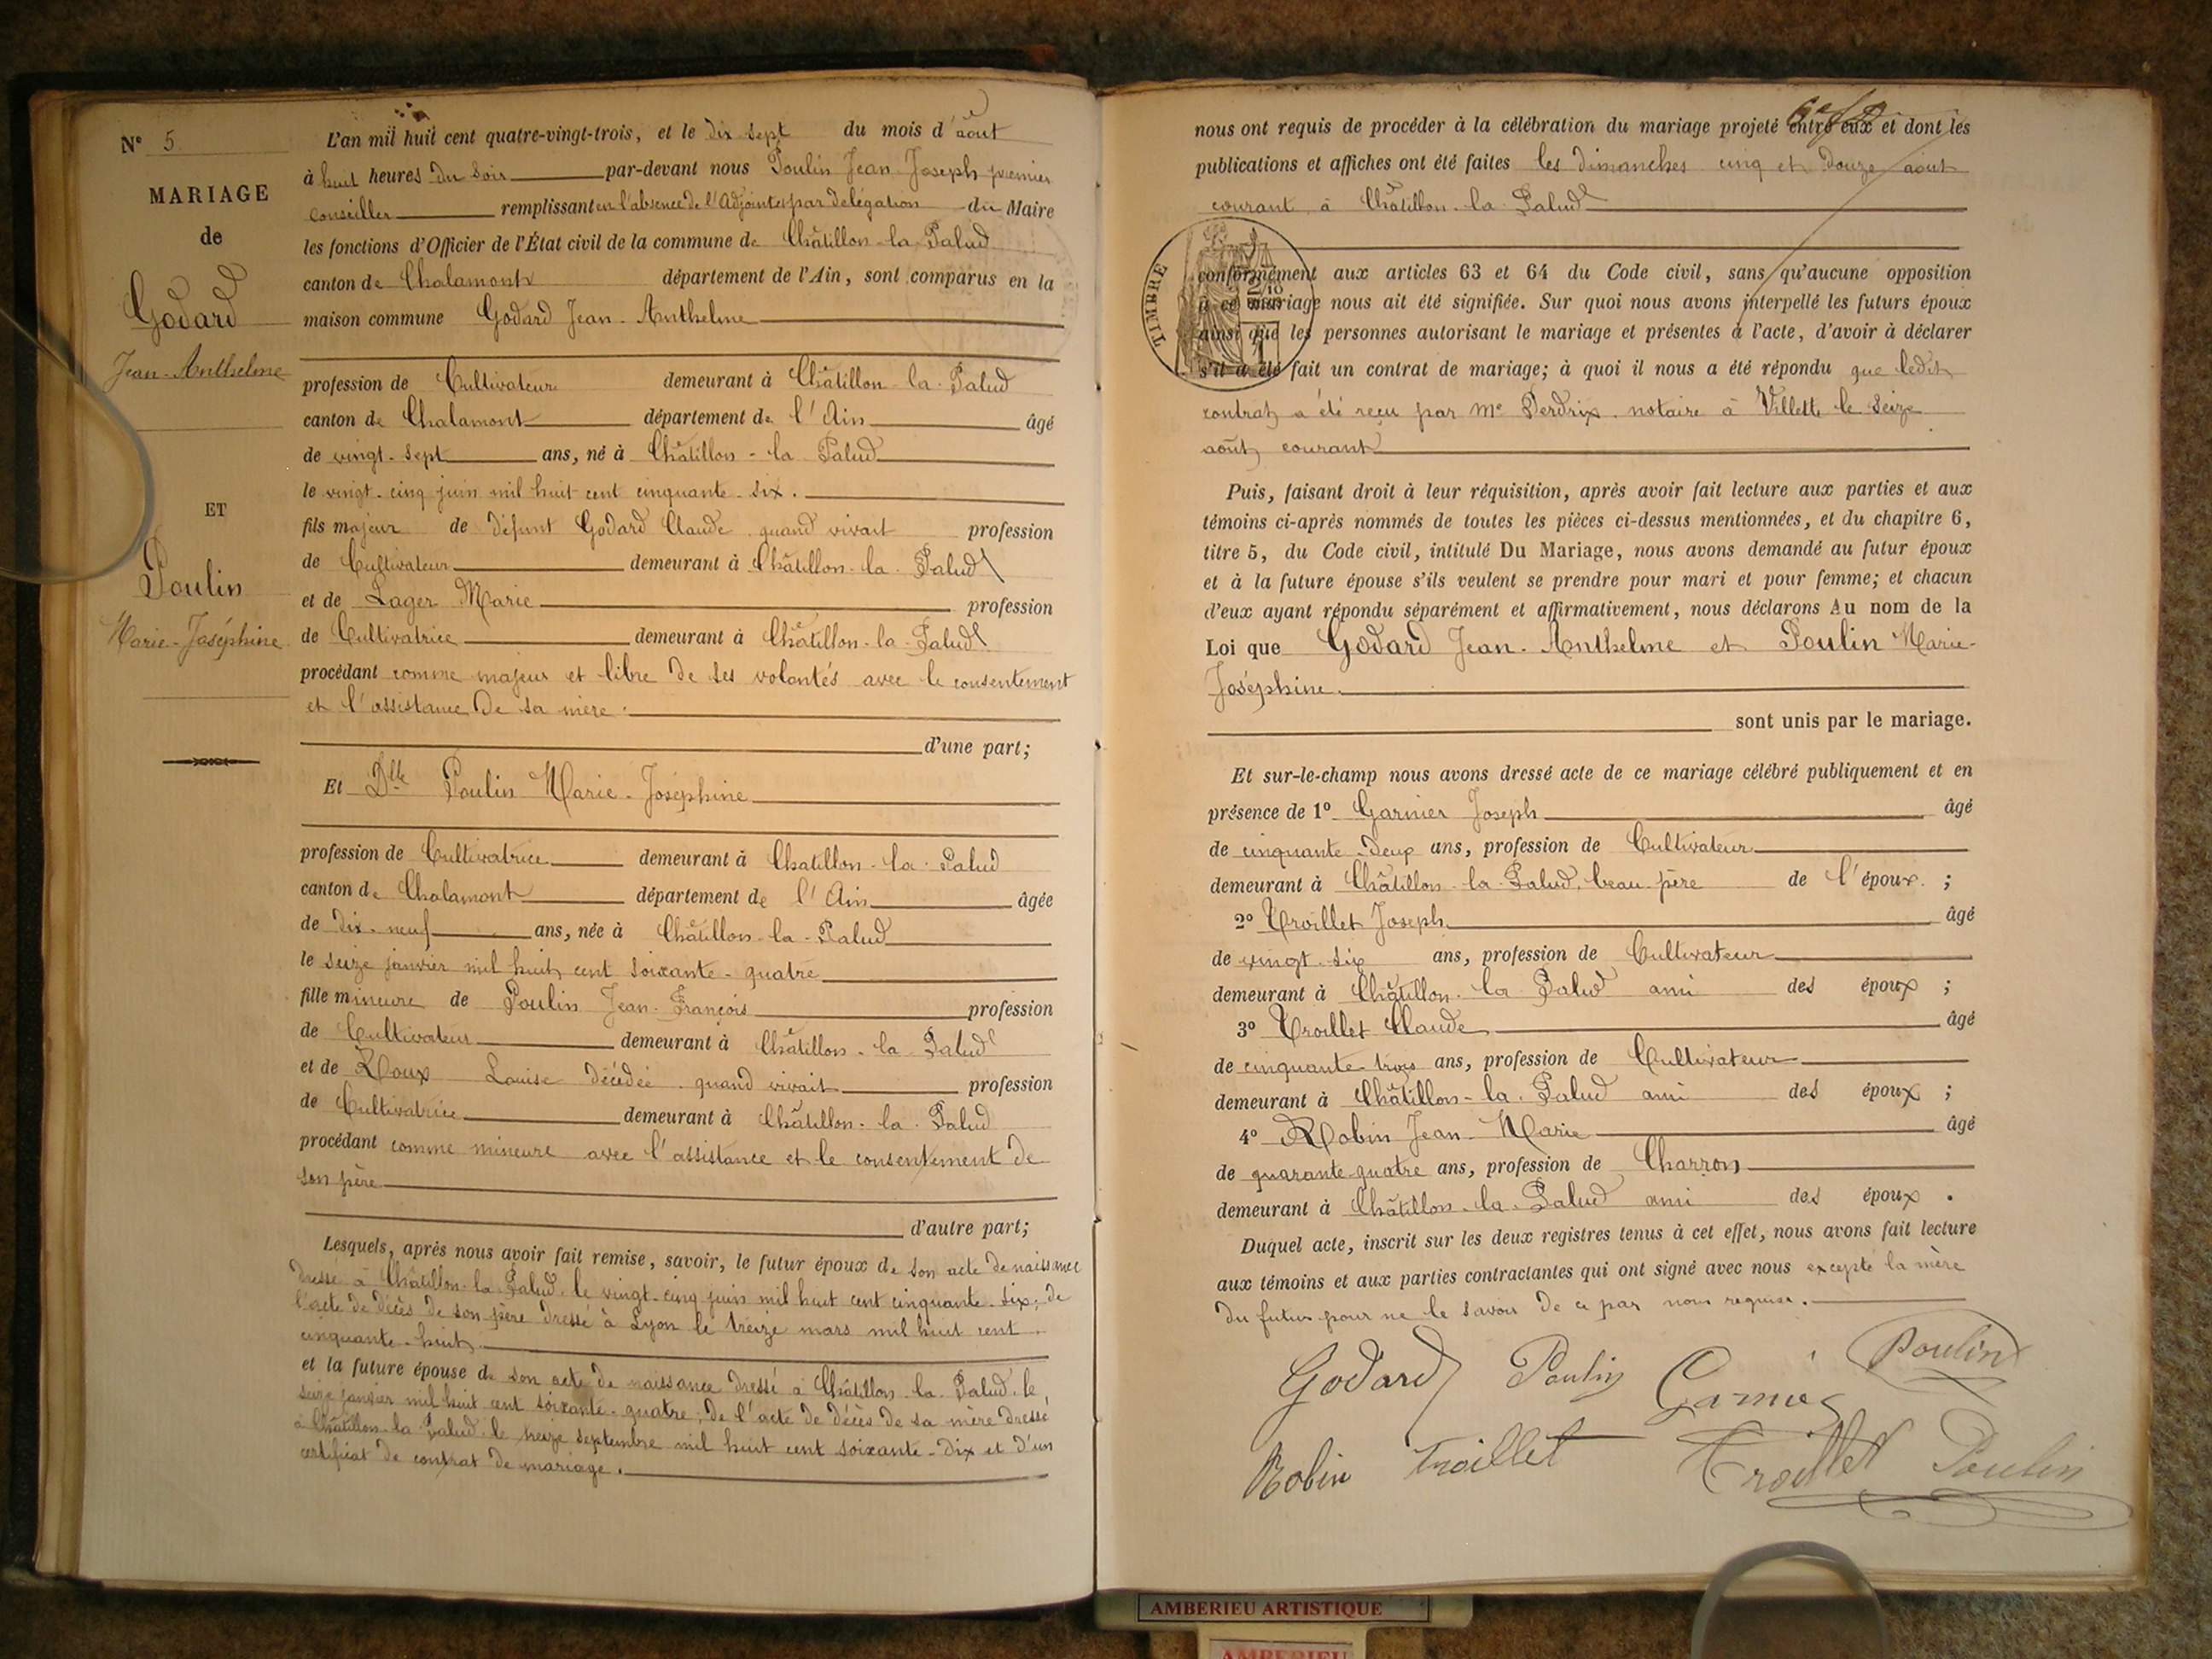 N° 5
MARIAGE
de
Godard
Jean-Anthelme
ET
Poulin
Marie-Joséphine
L'an mil huit cent quatre-vingt-trois, et le dix sept du mois d'août
à huit heures du soir par-devant nous Poulin Jean Joseph premier
conseiller remplissant en l'absence de l'Adjoint et par délégation du Maire
les fonctions d'Officier de l'État civil de la commune de Châtillon-la-Palud
canton de Chalamont département de l'Ain, sont comparus en la
maison commune Godard Jean-Anthelme
profession de Cultivateur demeurant à Châtillon-la-Palud
canton de Chalamont département de l'Ain âgé
de vingt-sept ans, né à Châtillon-la-Palud
le vingt-cinq juin mil huit cent cinquante-six.
fils majeur de défunt Godard Claude quand vivait profession
de Cultivateur demeurant à Châtillon-la-Palud
et de Lager Marie profession
de Cultivatrice demeurant à Châtillon-la-Palud
procédant comme majeur et libre de ses volontés avec le consentement
et l'assistance de sa mère.
d'une part;
Et Dlle Poulin Marie-Joséphine
profession de Cultivatrice demeurant à Chatillon-la-Palud
canton de Chalamont département de l'Ain âgée
de dix-neuf ans, née à Châtillon-la-Palud
le seize janvier mil huit cent soixante-quatre
fille mineure de Poulin Jean-François profession
de Cultivateur demeurant à Châtillon-la-Palud
et de Roux Louise décédée quand vivait profession
de Cultivatrice demeurant à Châtillon-la-Palud
procédant comme mineure avec l'assistance et le consentement de
son père
d'autre part;
Lesquels, après nous avoir fait remise, savoir, le futur époux de son acte de naissance
dressé à Châtillon-la-Palud le vingt-cinq juin mil huit cent cinquante-six; de
l'acte de décès de son père dressé à Lyon le treize mars mil huit cent
cinquante-huit
et la future épouse de son acte de naissance dressé à Châtillon-la-Palud le
seize janvier mil huit cent soixante-quatre; de l'acte de décès de sa mère dressé
à Châtillon-la-Palud le treize septembre mil huit cent soixante-dix et d'un
certificat de contrat de mariage.
nous ont requis de procéder à la célébration du mariage projeté entre eux et dont les
publications et affiches ont été faites les dimanches cinq et douze aout
courant à Châtillon-la-Palud
TIMBRE
conformément aux articles 63 et 64 du Code civil, sans qu'aucune opposition
à ce mariage nous ait été signifiée. Sur quoi nous avons interpellé les futurs époux
ainsi que les personnes autorisant le mariage et présentes à l'acte, d'avoir à déclarer
s'il a été fait un contrat de mariage; à quoi il nous a été répondu que ledit
contrat a été reçu par Me Perdrix notaire à Villette le seize
août courant
Puis, faisant droit à leur réquisition, après avoir fait lecture aux parties et aux
témoins ci-après nommés de toutes les pièces ci-dessus mentionnées, et du chapitre 6,
titre 5, du Code civil, intitulé Du Mariage, nous avons demandé au futur époux
et à la future épouse s'ils veulent se prendre pour mari et pour femme; et chacun
d'eux ayant répondu séparément et affirmativement, nous déclarons Au nom de la
Loi que Godard Jean-Anthelme et Poulin Marie-
Joséphine
sont unis par le mariage.
Et sur-le-champ nous avons dressé acte de ce mariage célébré publiquement et en
présence de 1° Garnier Joseph âgé
de cinquante-deux ans, profession de Cultivateur
demeurant à Châtillon-la-Palud, beau-père de l'époux ;
2° Troillet Joseph âgé
de vingt-six ans, profession de Cultivateur
demeurant à Châtillon-la-Palud ami des époux ;
3° Troillet Claude âgé
de cinquante-trois ans, profession de Cultivateur
demeurant à Châtillon-la-Palud ami des époux ;
4° Robin Jean-Marie âgé
de quarante-quatre ans, profession de Charron
demeurant à Châtillon-la-Palud ami des époux .
Duquel acte, inscrit sur les deux registres tenus à cet effet, nous avons fait lecture
aux témoins et aux parties contractantes qui ont signé avec nous excepté la mère
du futur pour ne le savoir de ce par nous requise.
Godard Poulin Garnier Poulin
Robin Troillet Troillet Poulin
AMBERIEU ARTISTIQUE
AMBERIEU